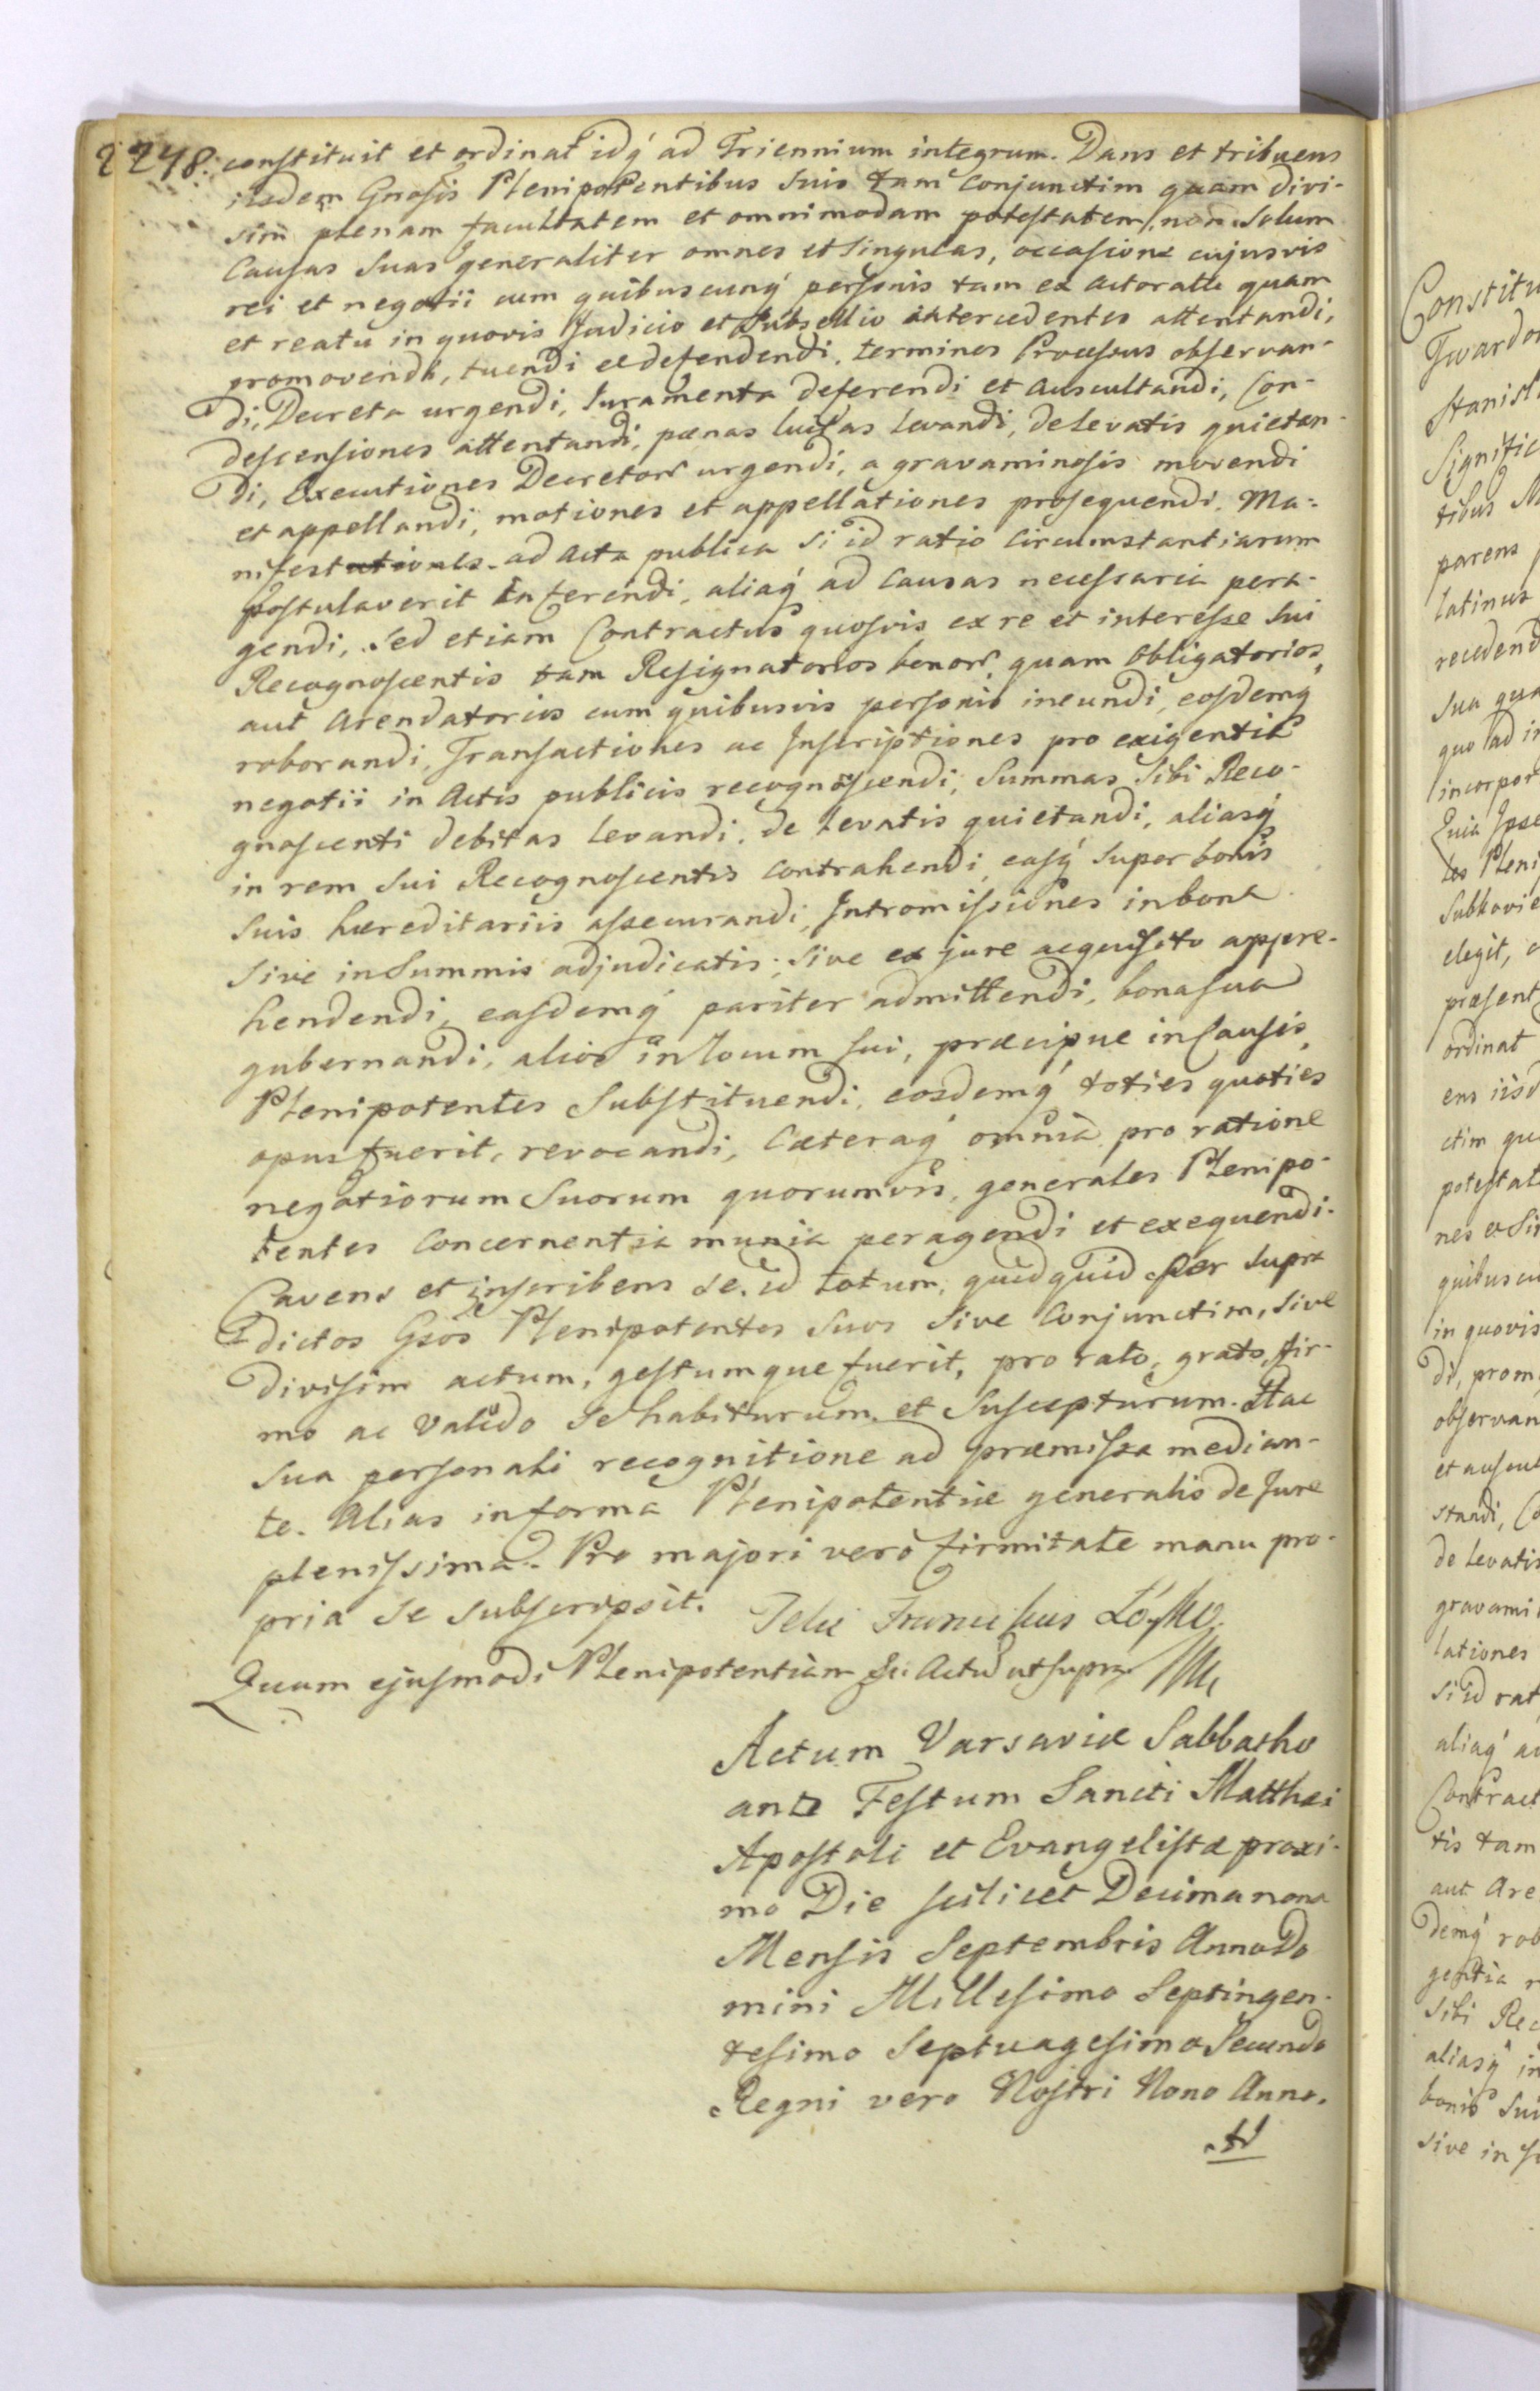 2 248. constituit et ordinat idq́ ad Triennium integrum. Dans et tribuens
iisdem Gnosis Plenipotentibus suis tam conjunctim quam divi-
sim plenam facultatem et omnimodam potestatem, non solum
Causas suas generaliter omnes et singulas, occasione cujusvis
rei et negotii cum quibuscunq́ personis tam ex actoratu quam
et reatu in quovis Judicio et Subsellio intercedentes attentandi,
promovendi, tuendi et defendendi, terminos Processus observan-
di, Decreta urgendi, Juramenta deferendi et auscultandi, Con-
descensiones attentandi, pænas luitas levandi, de levatis quietan-
di, Executiones Decretor urgendi, a gravaminosis movendi
et appellandi, motiones et appellationes prosequendi. Ma-
nifestationes ad acta publica si id ratio circumstantiarum
postulaverit inferendi, aliaq́ ad causas necessaria pera-
gendi, sed etiam Contractus quosvis ex re et interesse sui
Recognoscentis tam Resignatorios bonor quam Obligatorios,
aut Arendatorios cum quibusvis personis ineundi, eosdemq́
roborandi, Transactiones ac Inscriptiones pro exigentia
negotii in Actis publicis recognoscendi, Summas sibi Reco-
gnoscenti debitas levandi, de levatis quietandi, aliasq́
in rem sui Recognoscentis contrahendi, easq́ super bonis
suis hæreditariis assecurandi, Intromissiones in bona
sive in Summis adjudicatis, sive ex jure acquisito appre-
hendendi, easdemq́ pariter admittendi, bona sua
gubernandi, alios in locum sui, præcipue in Causis,
Plenipotentes Substituendi, eosdemq́ toties quoties
opus fuerit, revocandi, Cæteraq́ omnia pro ratione
negotiorum Suorum quorumvis, generales Plenipo-
tentes concernentia munia peragendi et exequendi.
Cavens et inscribens se id totum, quidquid per supra
dictos Gsos Plenipotentes suos sive conjunctim, sive
divisim actum, gestumque fuerit, pro rato, grato, fir-
mo ac valido se habiturum et suscepturum. Hac
sua personali recognitione ad præmissa median-
te. Alias in forma Plenipotentiæ generalis de Jure
plenissima. Pro majori vero firmitate manu pro-
pria se subscripsit. Felix Franciskus Łoyko
Quam ejusmodi Plenipotentiam Ex Actu ut supra
Actum Varsaviæ Sabbatho
ante Festum Sancti Matthæi
Apostoli et Evangelistæ proxi-
mo Die scilicet Decima nona
Mensis Septembris Anno Do
mini Millesimo Septingen-
tesimo Septuagesimo Secundo
Regni vero Nostri Nono Anno.
Constitu
Twardo
Stanisl
Signific
tibus M
parens
latinus
recedend
sua qua
quo ad in
incorpor
Quia Ipse
tes Pleni
Subkovie
elegit, c
præsent
ordinat
ens iisd
ctim qu
potestat
nes et Si
quibuscu
in quovis
di, prom
observan
et auscul
standi, Co
de levatis
gravami
lationes
si id rat
aliaq́ ad
Contract
tis tam
aut Are
demq́ rob
gentia r
sibi Rec
aliasq́ in
bonis sui
sive in S